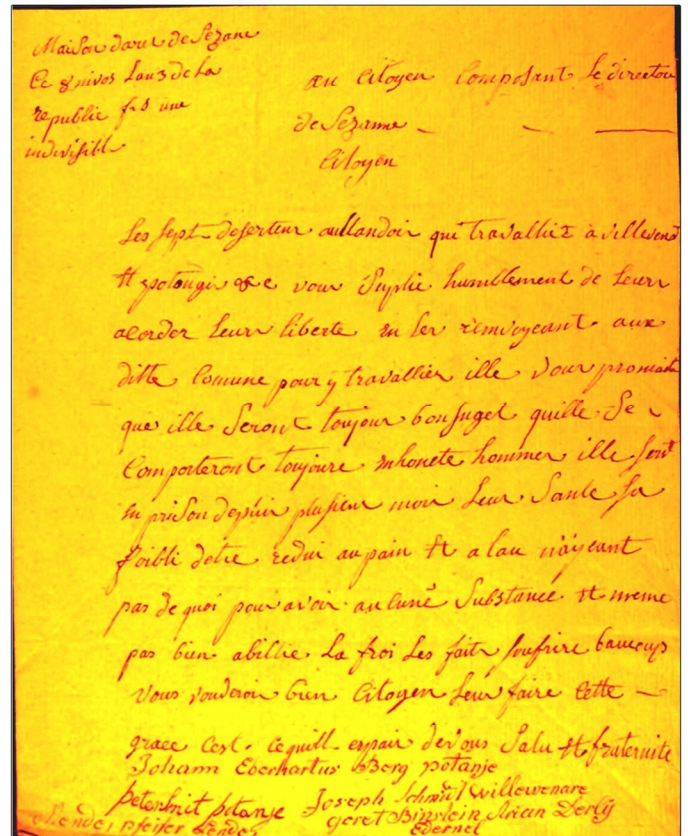 Maison daret de Sezane
Ce 8 nivos Lan 3 de La
republic f.s une
indivisibl
au Citoyen Composant Le directoir
de Sezanne
Citoyen
Les sept deserteur aullandoir qui travallit à villevend
et potangi &c vour suplie humblement de Leurr
acorder Leurr liberte en Ler renvoyeant aux
ditte Comune pour y travallier ille vour promiatt
que ille Seront toujour bon suget quille Se
Comporteront toujoure enhonete hommer ille sont
en prison depuir plusieur moir Leur Sante sa
foibli detre redui au pain et a lau n'ayeant
pas de quoi pour avoir aucune Substance et meme
pas bien abillie La froi Les fait soufrire baucup
Vous voudroir bien Citoyen Leur faire Cette
grace Cest. Cequill espair devous Salu et fraternite
Johann Eberhartus Berg potanje
Peter potanje Joseph Schmit Willewenare
Pfeifer geret Binslein Arian Derlÿ